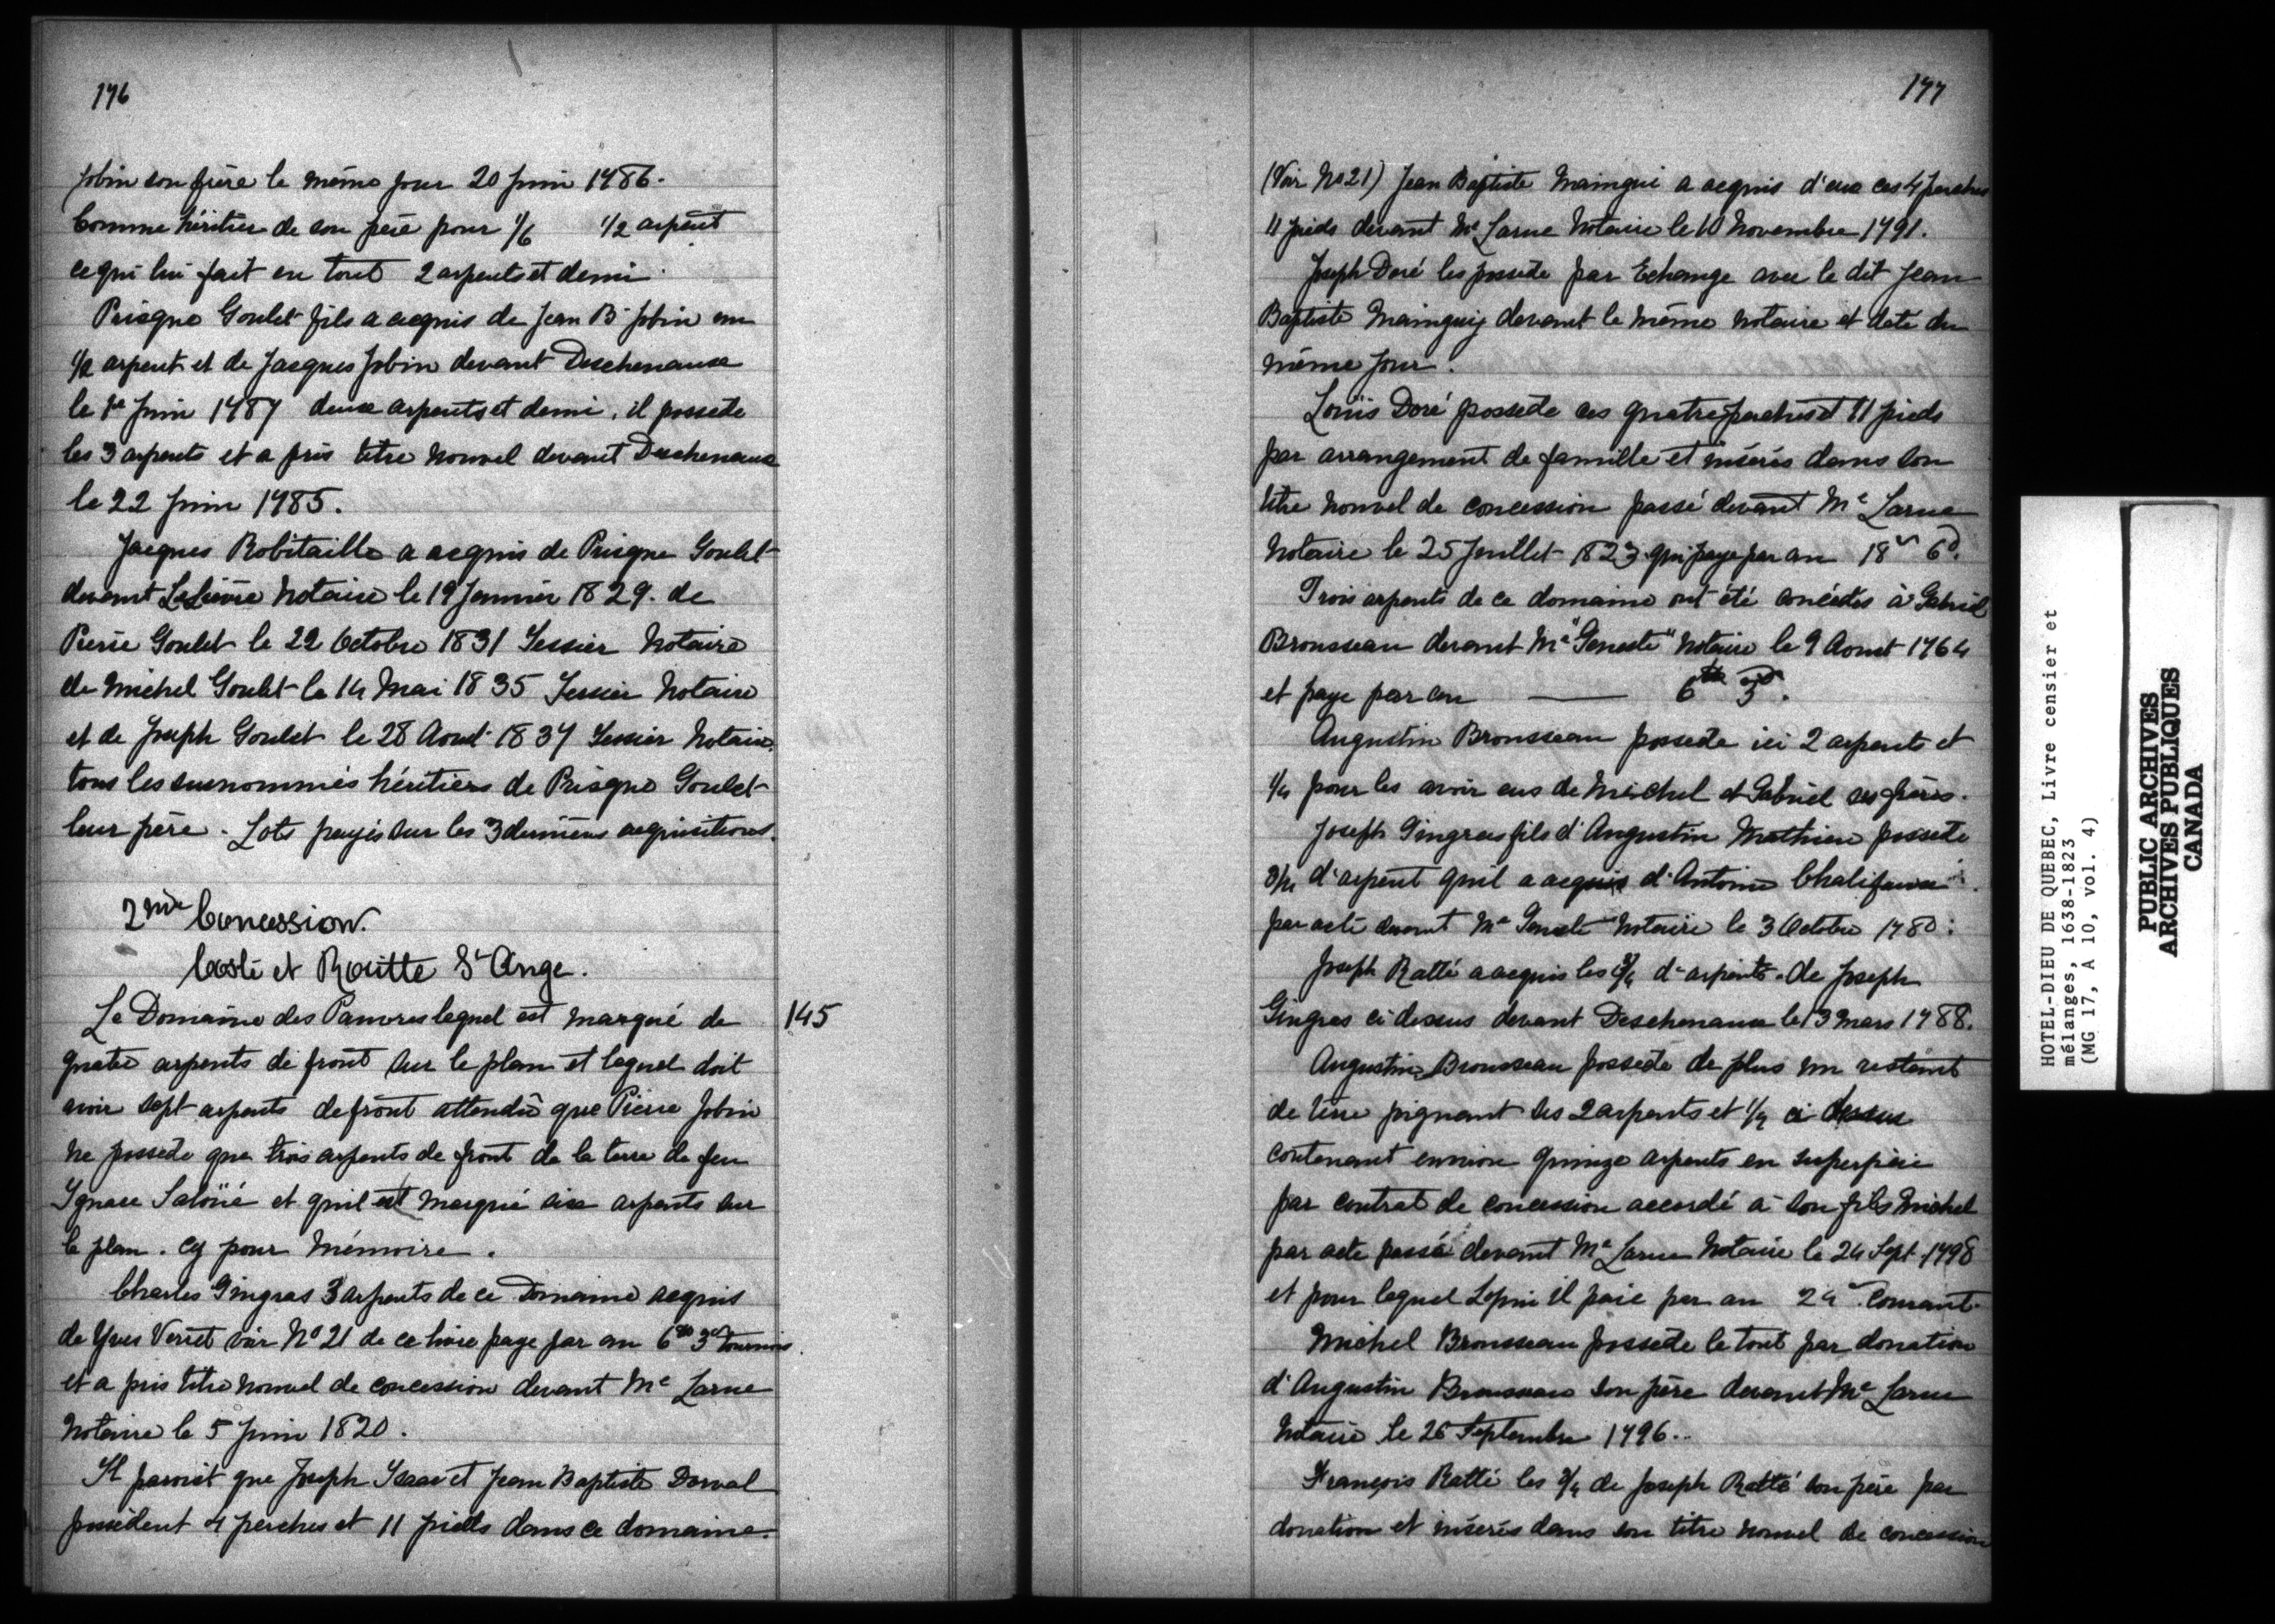 176
Jobin son frère le même jour 20 juin 1786.
Comme héritier de son père pour 1/6 1/2 arpent
ce qui lui fait en tout 2 arpents et demi.
Prisque Goulet fils a acquis de Jean Bte Jobin un
1/2 arpent et de Jacques Jobin devant Deschenaux
le 1er Juin 1787 deux arpents et demi, il possede
les 3 arpents et a pris titre nouvel devant Deschenaux
le 22 Juin 1785.
Jacques Robitaille a acquis de Prisque Goulet
devant LeLièvre Notaire le 19 Janvier 1829. de
Pierre Goulet le 22 Octobre 1831 Tessier Notaire
de Michel Goulet le 14 Mai 1835 Tessier Notaire
et de Joseph Goulet le 28 Aout 1837 Tessier Notaire.
tous les susnommés héritiers de Prisque Goulet
leur père. Lots payés sur les 3 dernières acquisitions.
2me Concession.
Costé et Routte St Ange.
Le Domaine des Pauvres lequel est marqué de 145
quatre arpents de front sur le plan et lequel doit
avoir sept arpents de front attendû que Pierre Jobin
ne possede que trois arpents de front de la terre de feu
Ignace Saloüé et qu'il est marqué six arpents sur
le plan. Cy pour Mémoire.
Charles Gingras 3 arpents de ce Domaine acquis
de Yves Verret voir No 21 de ce livre paye par an 6tt 3d tournois.
et a pris titre nouvel de concession devant Me Larue
Notaire le 5 Juin 1820.
Il paroist que Joseph Isaac et Jean Baptiste Dorval
possèdent 4 perches et 11 pieds dans ce domaine.
177
(Voir No 21) Jean Baptiste Maingui a acquis d'eux ces 4 perches
11 pieds devant Me Larue Notaire le 10 Novembre 1791.
Joseph Doré les possède par Echange avec le dit Jean
Baptiste Mainguy devant le même notaire et daté du
même jour.
Loüis Doré possede ces quatre perches et 11 pieds
par arrangement de famille et insérés dans son
titre nouvel de concession passé devant Me Larue
Notaire le 25 Juillet 1823 qui paye par an 18s 6d.
Trois arpents de ce domaine ont été concédés à Gabriel
Brousseau devant Me "Geneste" Notaire le 9 Aoust 1764
et paye par an —— 6tt 3d.
Augustin Brousseau possede ici 2 arpents et
1/4 pour les avoir eus de Michel et Gabriel ses frères.
Joseph Gingras fils d'Augustin Mathieu possede
3/4 d'arpent qu'il a acquis d'Antoine Chalifoux
par acte devant Me Geneste Notaire le 3 Octobre 1780:
Joseph Ratté a acquis les 3/4 d'arpents de Joseph
Gingras ci dessus devant Deschenaux le 13 Mars 1788.
Augustin Brousseau possède de plus un restant
de terre joignant ses 2 arpents et 1/4 ci dessus
contenant environ quinze arpents en superficie
par contrat de concession accordé à son fils Michel
par acte passé devant Me Larue Notaire le 24 Sept. 1798
et pour lequel Lopin il paie par an 24s. Courant.
Michel Brousseau possède le tout par donation
d'Augustin Brousseau son père devant Me Larue
Notaire le 26 Septembre 1796..
François Ratté les 3/4 de Joseph Ratté son père par
donation et insérés dans son titre nouvel de concession
HOTEL-DIEU DE QUEBEC, Livre censier et
mélanges, 1638-1823
(MG 17, A 10, vol. 4)
PUBLIC ARCHIVES
ARCHIVES PUBLIQUES
CANADA